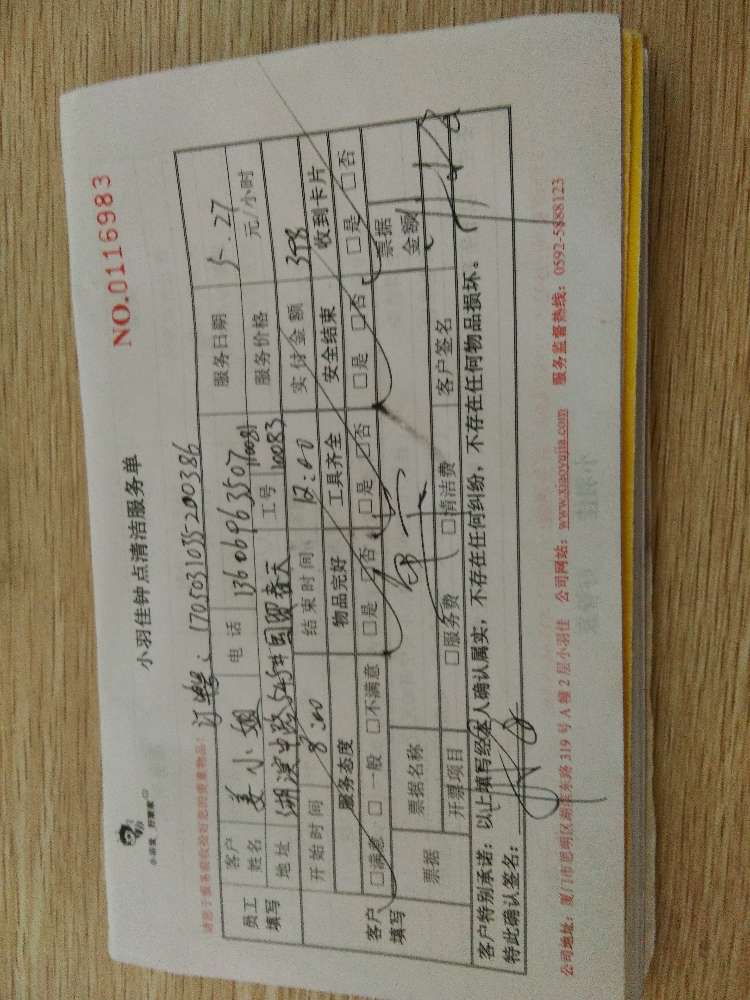 小羽佳 好管家
NO.0116983
小羽佳钟点清洁服务单
请您于服务前收捡好您的贵重物品!
订单号: 1705031035200386
员工填写 客户姓名 姜小姐 电话 13606963507 服务日期 5.27
地址 湖滨中路545#国贸春天 工号 110081 10083 服务价格 元/小时
开始时间 8:00 结束时间 12:00 实付金额 398
客户填写 服务态度 物品完好 工具齐全 安全结束 收到卡片
□满意 □一般 □不满意 □是 □否 □是 □否 □是 □否 □是 □否
票据 票据名称 票据金额
开票项目 □服务费 □清洁费 客户签名
客户特别承诺:以上填写经本人确认属实,不存在任何纠纷,不存在任何物品损坏。
特此确认签名:
公司地址:厦门市思明区湖滨东路 319 号 A 幢 2 层小羽佳 公司网站:www.xiaoyujia.com 服务监督热线:0592-5888123